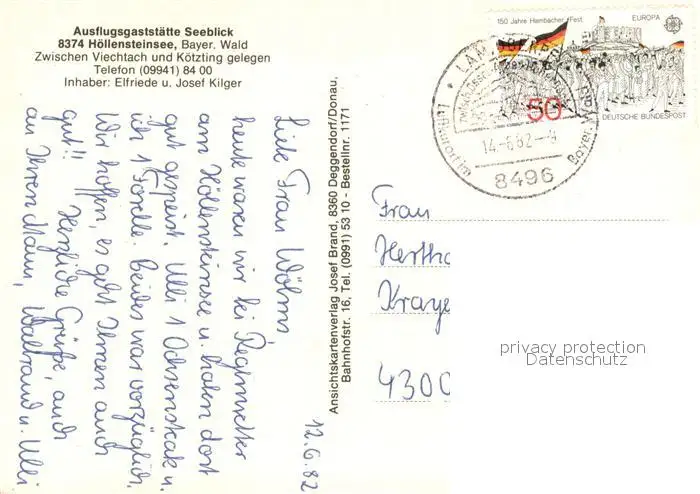 Ausflugsgaststätte Seeblick
8374 Höllensteinsee, Bayer. Wald
Zwischen Viechtach und Kötzting gelegen
Telefon (09941) 84 00
Inhaber: Elfriede u. Josef Kilger
12.6.82
Liebe Frau Wölms,
heute waren wir bei Regenwetter
am Höllensteinsee u. haben dort
gut gespeist. Ulli 1 Ochsensteak u.
ich 1 Forelle. Beides war vorzüglich.
Wir hoffen, es geht Ihnen auch
gut!! Herzliche Grüße, auch
an Ihren Mann, Waltraud u. Ulli
Ansichtskartenverlag Josef Brand, 8360 Deggendorf/Donau,
Bahnhofstr. 16, Tel. (0991) 53 10 - Bestellnr. 1171
150 Jahre Hambacher Fest
EUROPA
50
DEUTSCHE BUNDESPOST
Luftkurort im
Bayer.
14-6.82-9
8496
Frau
Hertha
Kraye
4300
privacy protection
Datenschutz